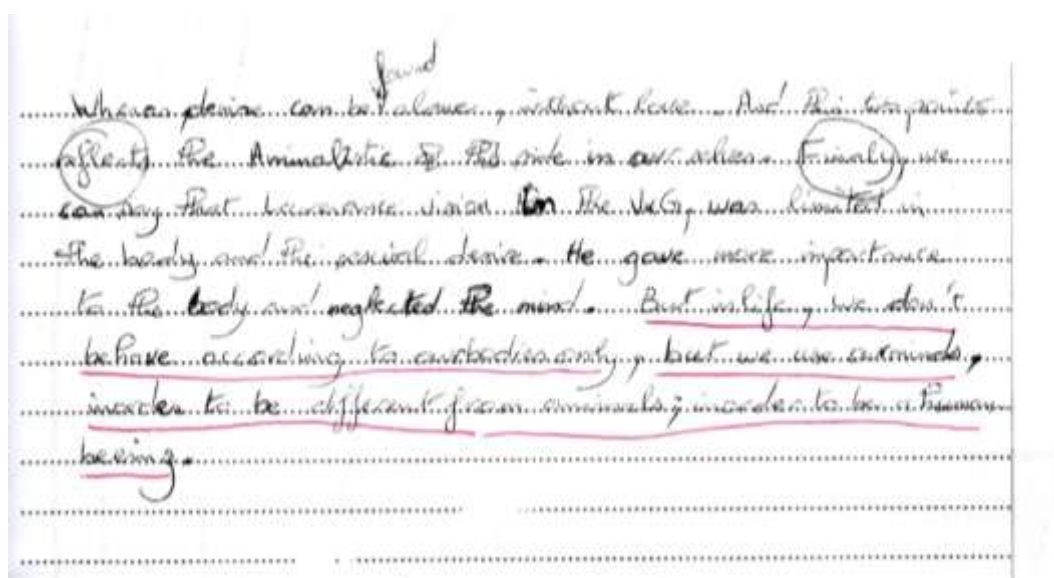 found
Wheras desire can be alower, without love. And this two points
reflects the Aminalistic side in our selves. Finaly, we
can say that Lawrance vision in the V&G, was limited in
the boady and the sexual desire. He gave more importance
to the body and neglected the mind. But in life, we don't
behave according to ourbodies only, but we use ourminds,
inorder to be different from animals; inorder to be a human
beeing.